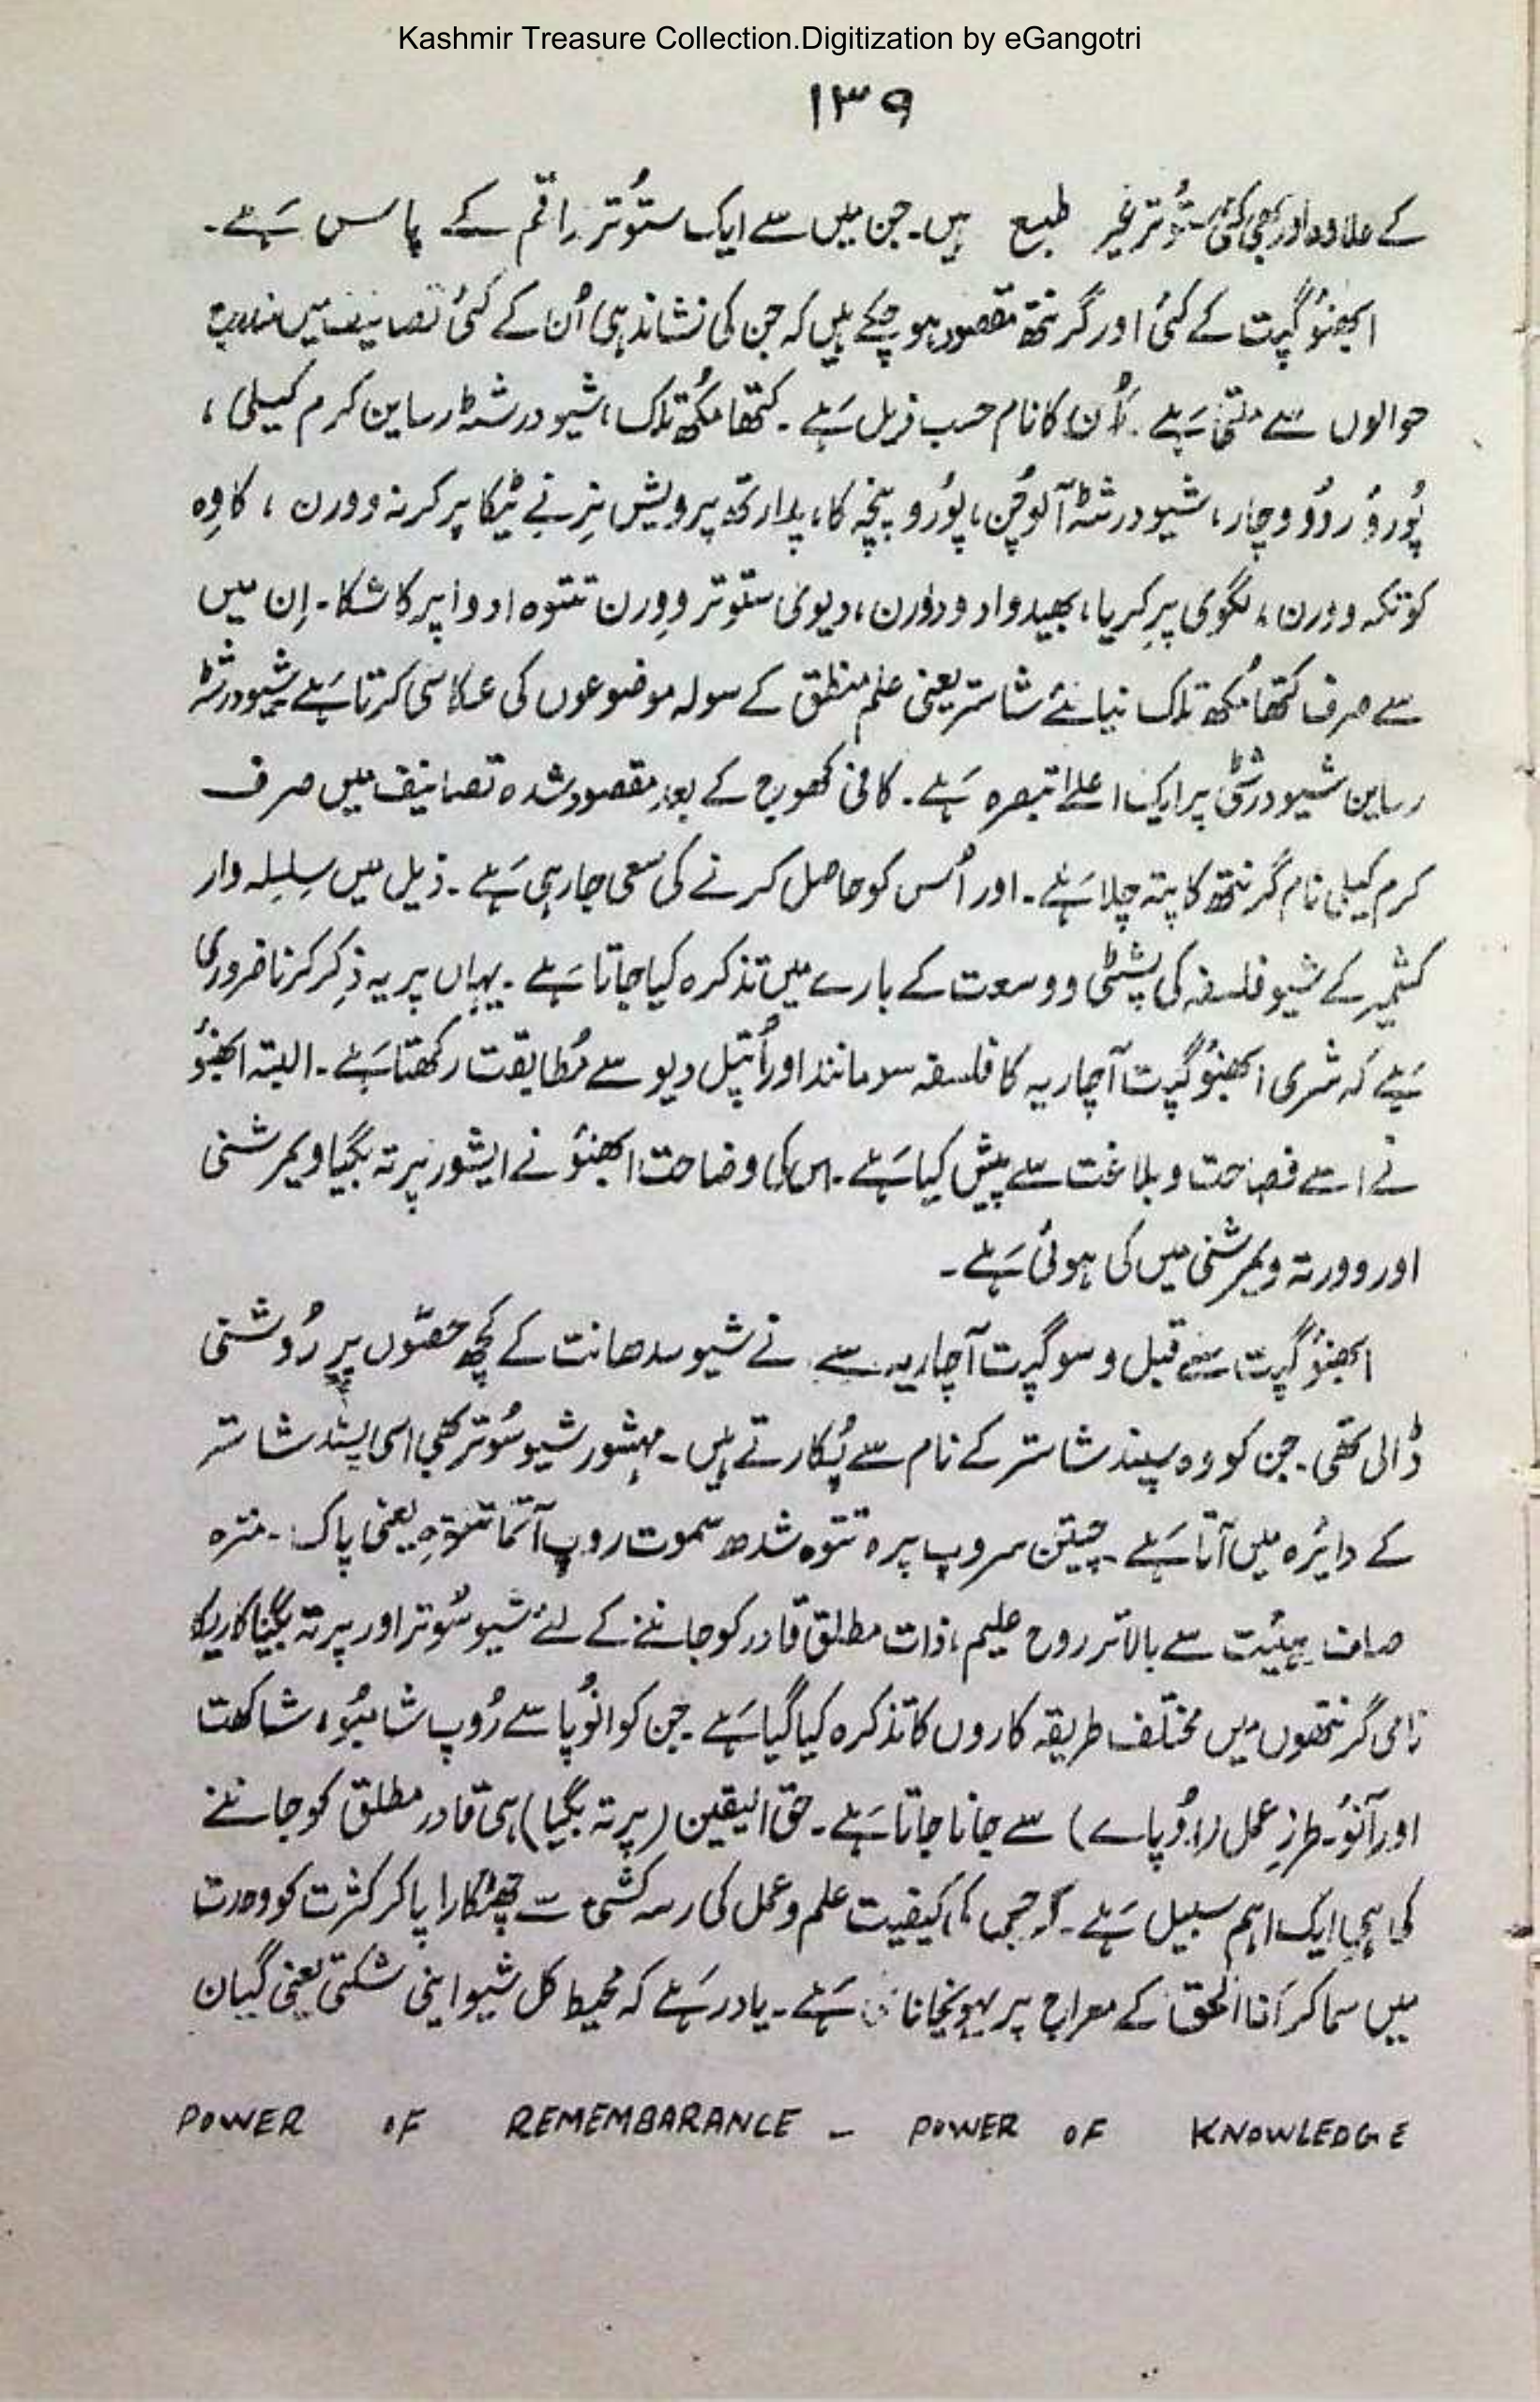 Kashmir Treasure Collection.Digitization by eGangotri
۱۳۹
کے علاوہ اور بھی کئی ستُوتر غیر طبع ہیں۔ جن میں سے ایک ستُوتر راقم کے پاس ہَے۔
ابھنوُگپت کے کئی اور گرنتھ مقصود ہو چکے ہیں کہ جن کی نشاندہی اُن کے کئی تصانیف میں مندرج
حوالوں سے ملتی ہَے۔ اُن کا نام حسب ذیل ہَے۔ کتھا مُکھ تلک، شیو درشٹہ رساین کرم کیلی،
پُوروُ رودُو وچار، شیو درشٹہ آلوچن، پوُرو پنچہ کا، پدارتھ پرویش نِرنے ٹیکا پرکرنہ وورن، کاوِہ
کوتکہ وورن، لگوی پرکریا، بھیدواد ودورن، دیوی ستوتر وورن تتوہ ادوا پرکاشکا۔ اِن میں
سے صرف کتھا مُکھ تلک نیائے شاستر یعنی علم منطق کے سولہ موضوعوں کی عکاسی کرتا ہَے شیو درشٹہ
رساین شیو درشٹی پر ایک اعلےٰ تبصرہ ہَے۔ کافی کھوج کے بعد مقصود شدہ تصانیف میں صرف
کرم کیلی نام گرنتھ کا پتہ چلا ہَے۔ اور اُس کو حاصل کرنے کی سعی جا رہی ہَے۔ ذیل میں سِلسِلہ وار
کشمیر کے شیو فلسفہ کی پشٹی و وسعت کے بارے میں تذکرہ کیا جاتا ہَے۔ یہاں پر یہ ذِکر کرنا ضروری
ہَے کہ شری ابھنوُگپت آچاریہ کا فلسفہ سومانند اور اُتپل دیو سے مُطابقت رکھتا ہَے۔ البتہ ابھنوُ
نے اسے فصاحت و بلاغت سے پیش کیا ہَے۔ اس کی وضاحت ابھنوُ نے ایشور پرتہ بگیا ویمرشنی
اور وورتہ ویمرشنی میں کی ہوئی ہَے۔
ابھنوُگپت سے قبل وسوگپت آچاریہ سے نے شیو سدھانت کے کچھ حصّوں پر رُوشنی
ڈالی تھی۔ جن کو وہ سپند شاستر کے نام سے پُکارتے ہیں۔ مہشور شیو سُوتر بھی اسی سپند شاستر
کے دایرہ میں آتا ہَے۔ چیتن سروپ پرہ تتوہ شدھ سموت روپ آتما تتوہ یعنی پاک۔ منزہ
صاف ہیئت سے بالاتر روح علیم، ذات مطلق قادر کو جاننے کے لئے شیو سُوتر اور پرتہ بگیا کاریکا
نامی گرنتھوں میں مختلف طریقہ کاروں کا تذکرہ کیا گیا ہَے۔ جن کو انوُپا سے رُوپ شامبوُ، شاکھت
اور آنوُ۔ طرزِ عمل (اُپاے) سے جانا جاتا ہَے۔ حق الیقین (پرتہ بگیا) ہی قادر مطلق کو جاننے
کی ہی ایک اہم سبیل ہَے۔ کہ جس کا کیفیت علم و عمل کی رسہ کشی سے چھٹکارا پا کر کثرت کو وحدت
میں سما کر اَنا الحق کے معراج پر پہونچانا ہَے۔ یاد رہَے کہ محیط کل شیو اپنی شکتی یعنی گیان
POWER OF REMEMBARANCE - POWER OF KNOWLEDGE